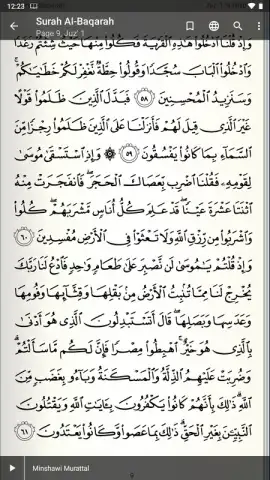 12:23
Surah Al-Baqarah
Page 9, Juz' 1
وَإِذْ قُلْنَا ٱدْخُلُوا۟ هَـٰذِهِ ٱلْقَرْيَةَ فَكُلُوا۟ مِنْهَا حَيْثُ شِئْتُمْ رَغَدًا
وَٱدْخُلُوا۟ ٱلْبَابَ سُجَّدًا وَقُولُوا۟ حِطَّةٌ نَّغْفِرْ لَكُمْ خَطَـٰيَـٰكُمْ ۚ
وَسَنَزِيدُ ٱلْمُحْسِنِينَ ٥٨ فَبَدَّلَ ٱلَّذِينَ ظَلَمُوا۟ قَوْلًا
غَيْرَ ٱلَّذِى قِيلَ لَهُمْ فَأَنزَلْنَا عَلَى ٱلَّذِينَ ظَلَمُوا۟ رِجْزًا مِّنَ
ٱلسَّمَآءِ بِمَا كَانُوا۟ يَفْسُقُونَ ٥٩ ۞ وَإِذِ ٱسْتَسْقَىٰ مُوسَىٰ
لِقَوْمِهِۦ فَقُلْنَا ٱضْرِب بِّعَصَاكَ ٱلْحَجَرَ ۖ فَٱنفَجَرَتْ مِنْهُ
ٱثْنَتَا عَشْرَةَ عَيْنًا ۖ قَدْ عَلِمَ كُلُّ أُنَاسٍ مَّشْرَبَهُمْ ۖ كُلُوا۟
وَٱشْرَبُوا۟ مِن رِّزْقِ ٱللَّهِ وَلَا تَعْثَوْا۟ فِى ٱلْأَرْضِ مُفْسِدِينَ ٦٠
وَإِذْ قُلْتُمْ يَـٰمُوسَىٰ لَن نَّصْبِرَ عَلَىٰ طَعَامٍ وَٰحِدٍ فَٱدْعُ لَنَا رَبَّكَ
يُخْرِجْ لَنَا مِمَّا تُنۢبِتُ ٱلْأَرْضُ مِنۢ بَقْلِهَا وَقِثَّآئِهَا وَفُومِهَا
وَعَدَسِهَا وَبَصَلِهَا ۖ قَالَ أَتَسْتَبْدِلُونَ ٱلَّذِى هُوَ أَدْنَىٰ
بِٱلَّذِى هُوَ خَيْرٌ ۚ ٱهْبِطُوا۟ مِصْرًا فَإِنَّ لَكُم مَّا سَأَلْتُمْ ۗ
وَضُرِبَتْ عَلَيْهِمُ ٱلذِّلَّةُ وَٱلْمَسْكَنَةُ وَبَآءُو بِغَضَبٍ مِّنَ
ٱللَّهِ ۗ ذَٰلِكَ بِأَنَّهُمْ كَانُوا۟ يَكْفُرُونَ بِـَٔايَـٰتِ ٱللَّهِ وَيَقْتُلُونَ
ٱلنَّبِيِّـۧنَ بِغَيْرِ ٱلْحَقِّ ۗ ذَٰلِكَ بِمَا عَصَوا۟ وَّكَانُوا۟ يَعْتَدُونَ ٦١
Minshawi Murattal